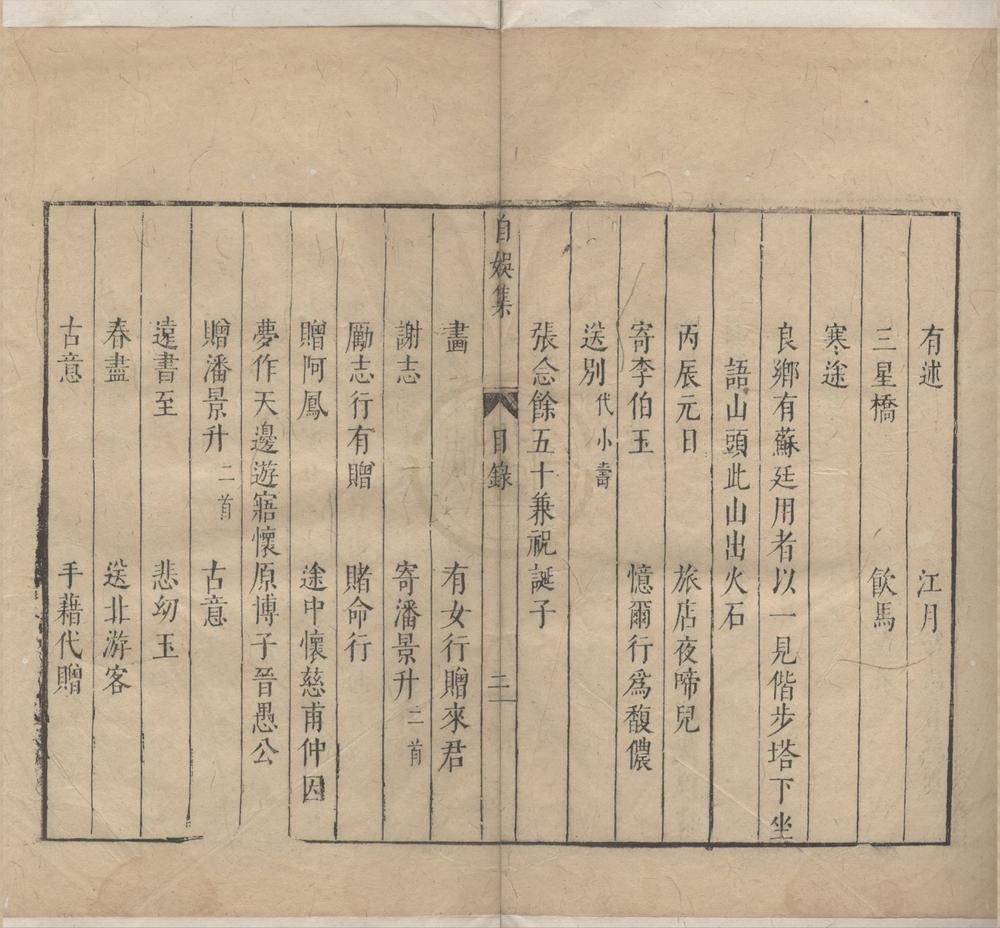 有述　江月
三星橋　飲馬
寒途
良鄉有蘇廷用者以一見偕步塔下坐
語山頭此山出火石
丙辰元日　旅店夜啼兒
寄李伯玉　憶爾行爲馥儂
送別代小壽
張念餘五十兼祝誕子
自娛集　目錄　二
畵　有女行贈來君
謝志　寄潘景升二首
勵志行有贈　賭命行
贈阿鳳　途中懷慈甫仲因
夢作天邊遊寤懷原博子晉愚公
贈潘景升二首　古意
遠書至　悲幼玉
春盡　送北游客
古意　手藉代贈